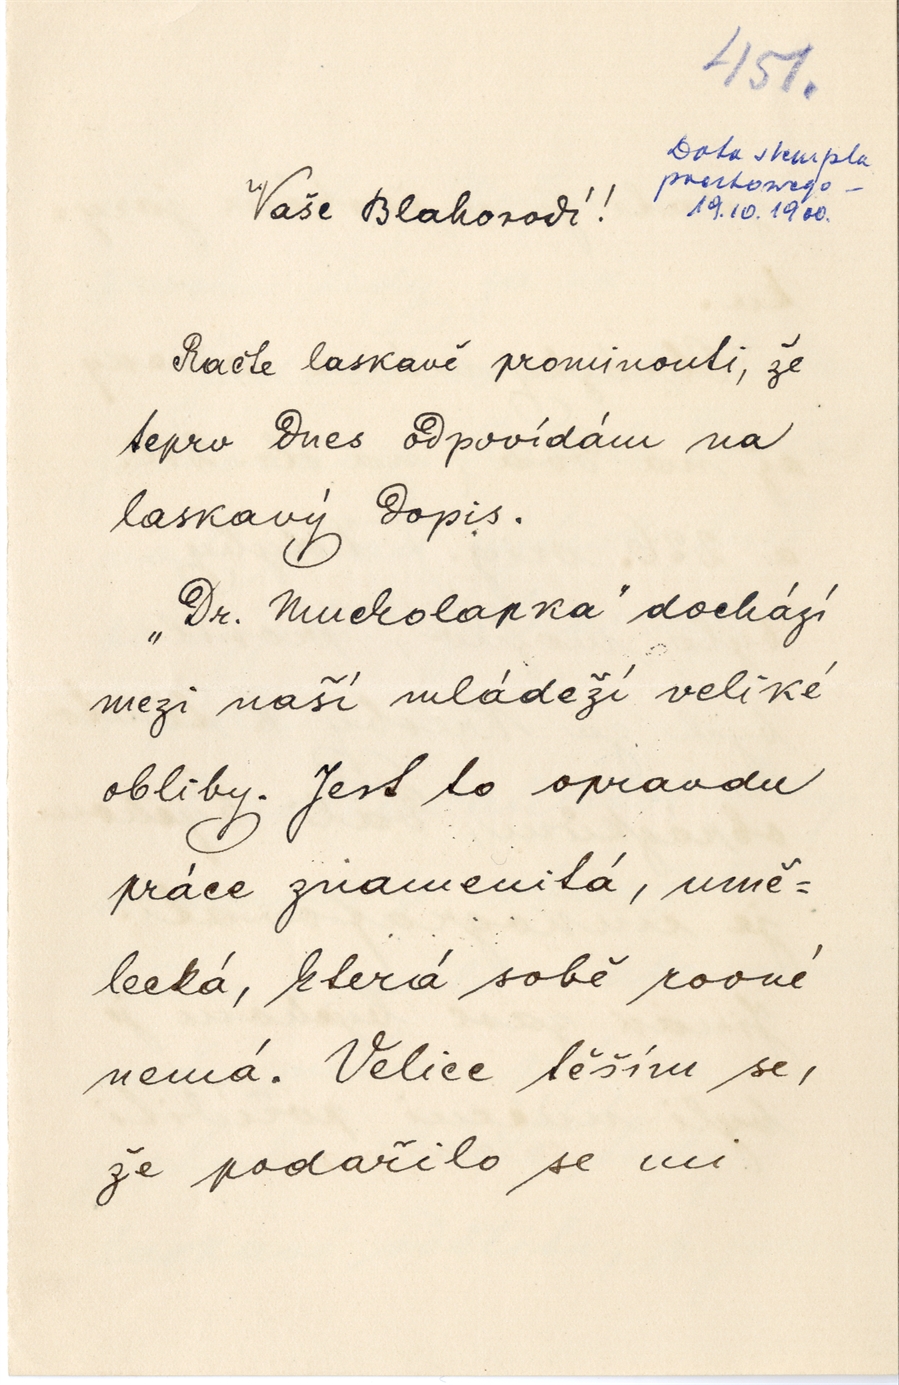 451.
Data stempla
pocztowego –
19.10.1900.
Vaše Blahorodí!
Račte laskavě prominouti, že
teprv dnes odpovídám na
laskavý dopis.
„Dr. Mucholapka" dochází
mezi naší mládeží veliké
obliby. Jest to opravdu
práce znamenitá, umě=
lecká, která sobě rovné
nemá. Velice těším se,
že podařilo se mi